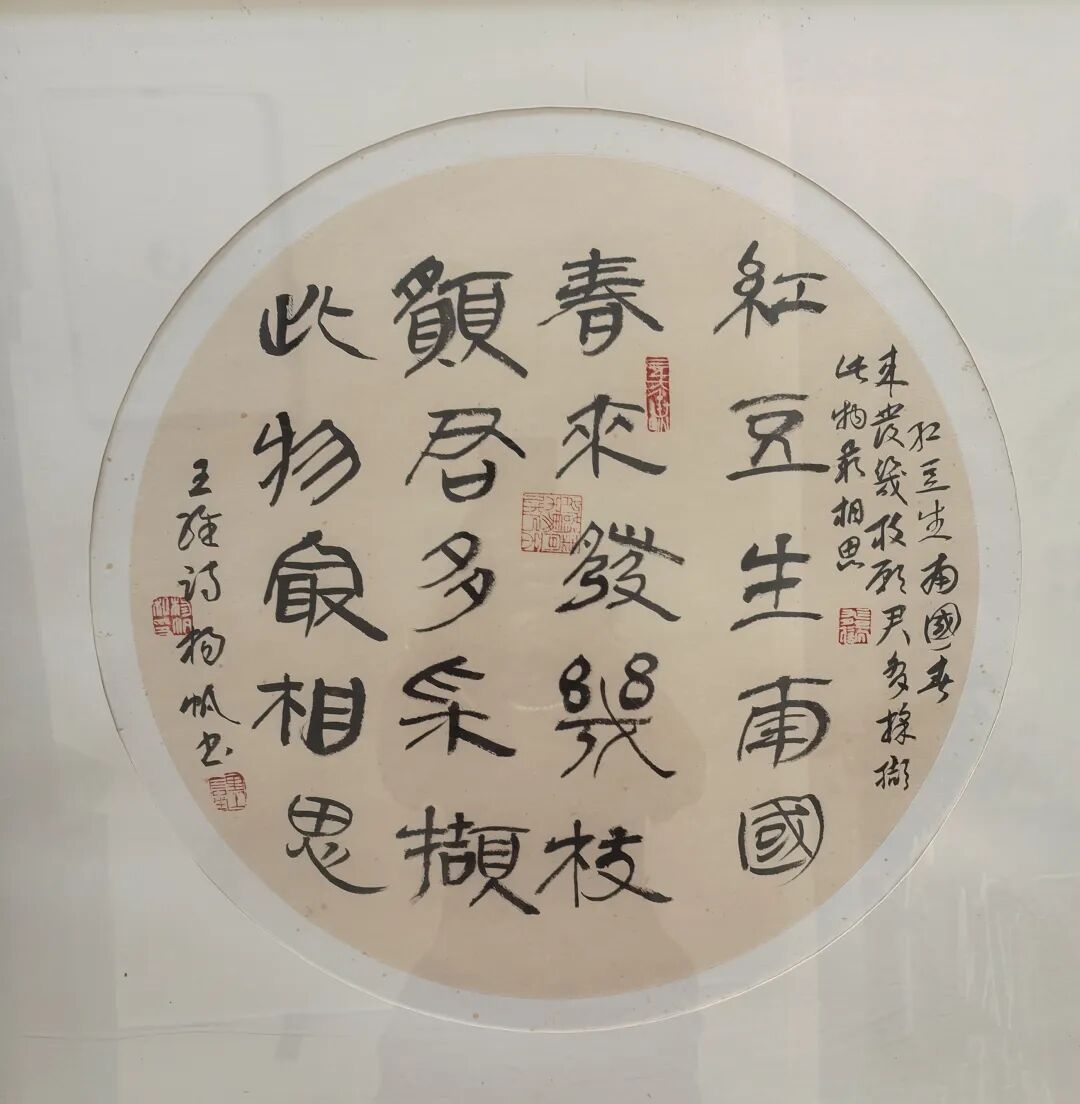 紅豆生南國
春來發幾枝
願君多采擷
此物最相思
紅豆生南國春
来發幾枝願君多採擷
此物最相思
王維詩楊帆书